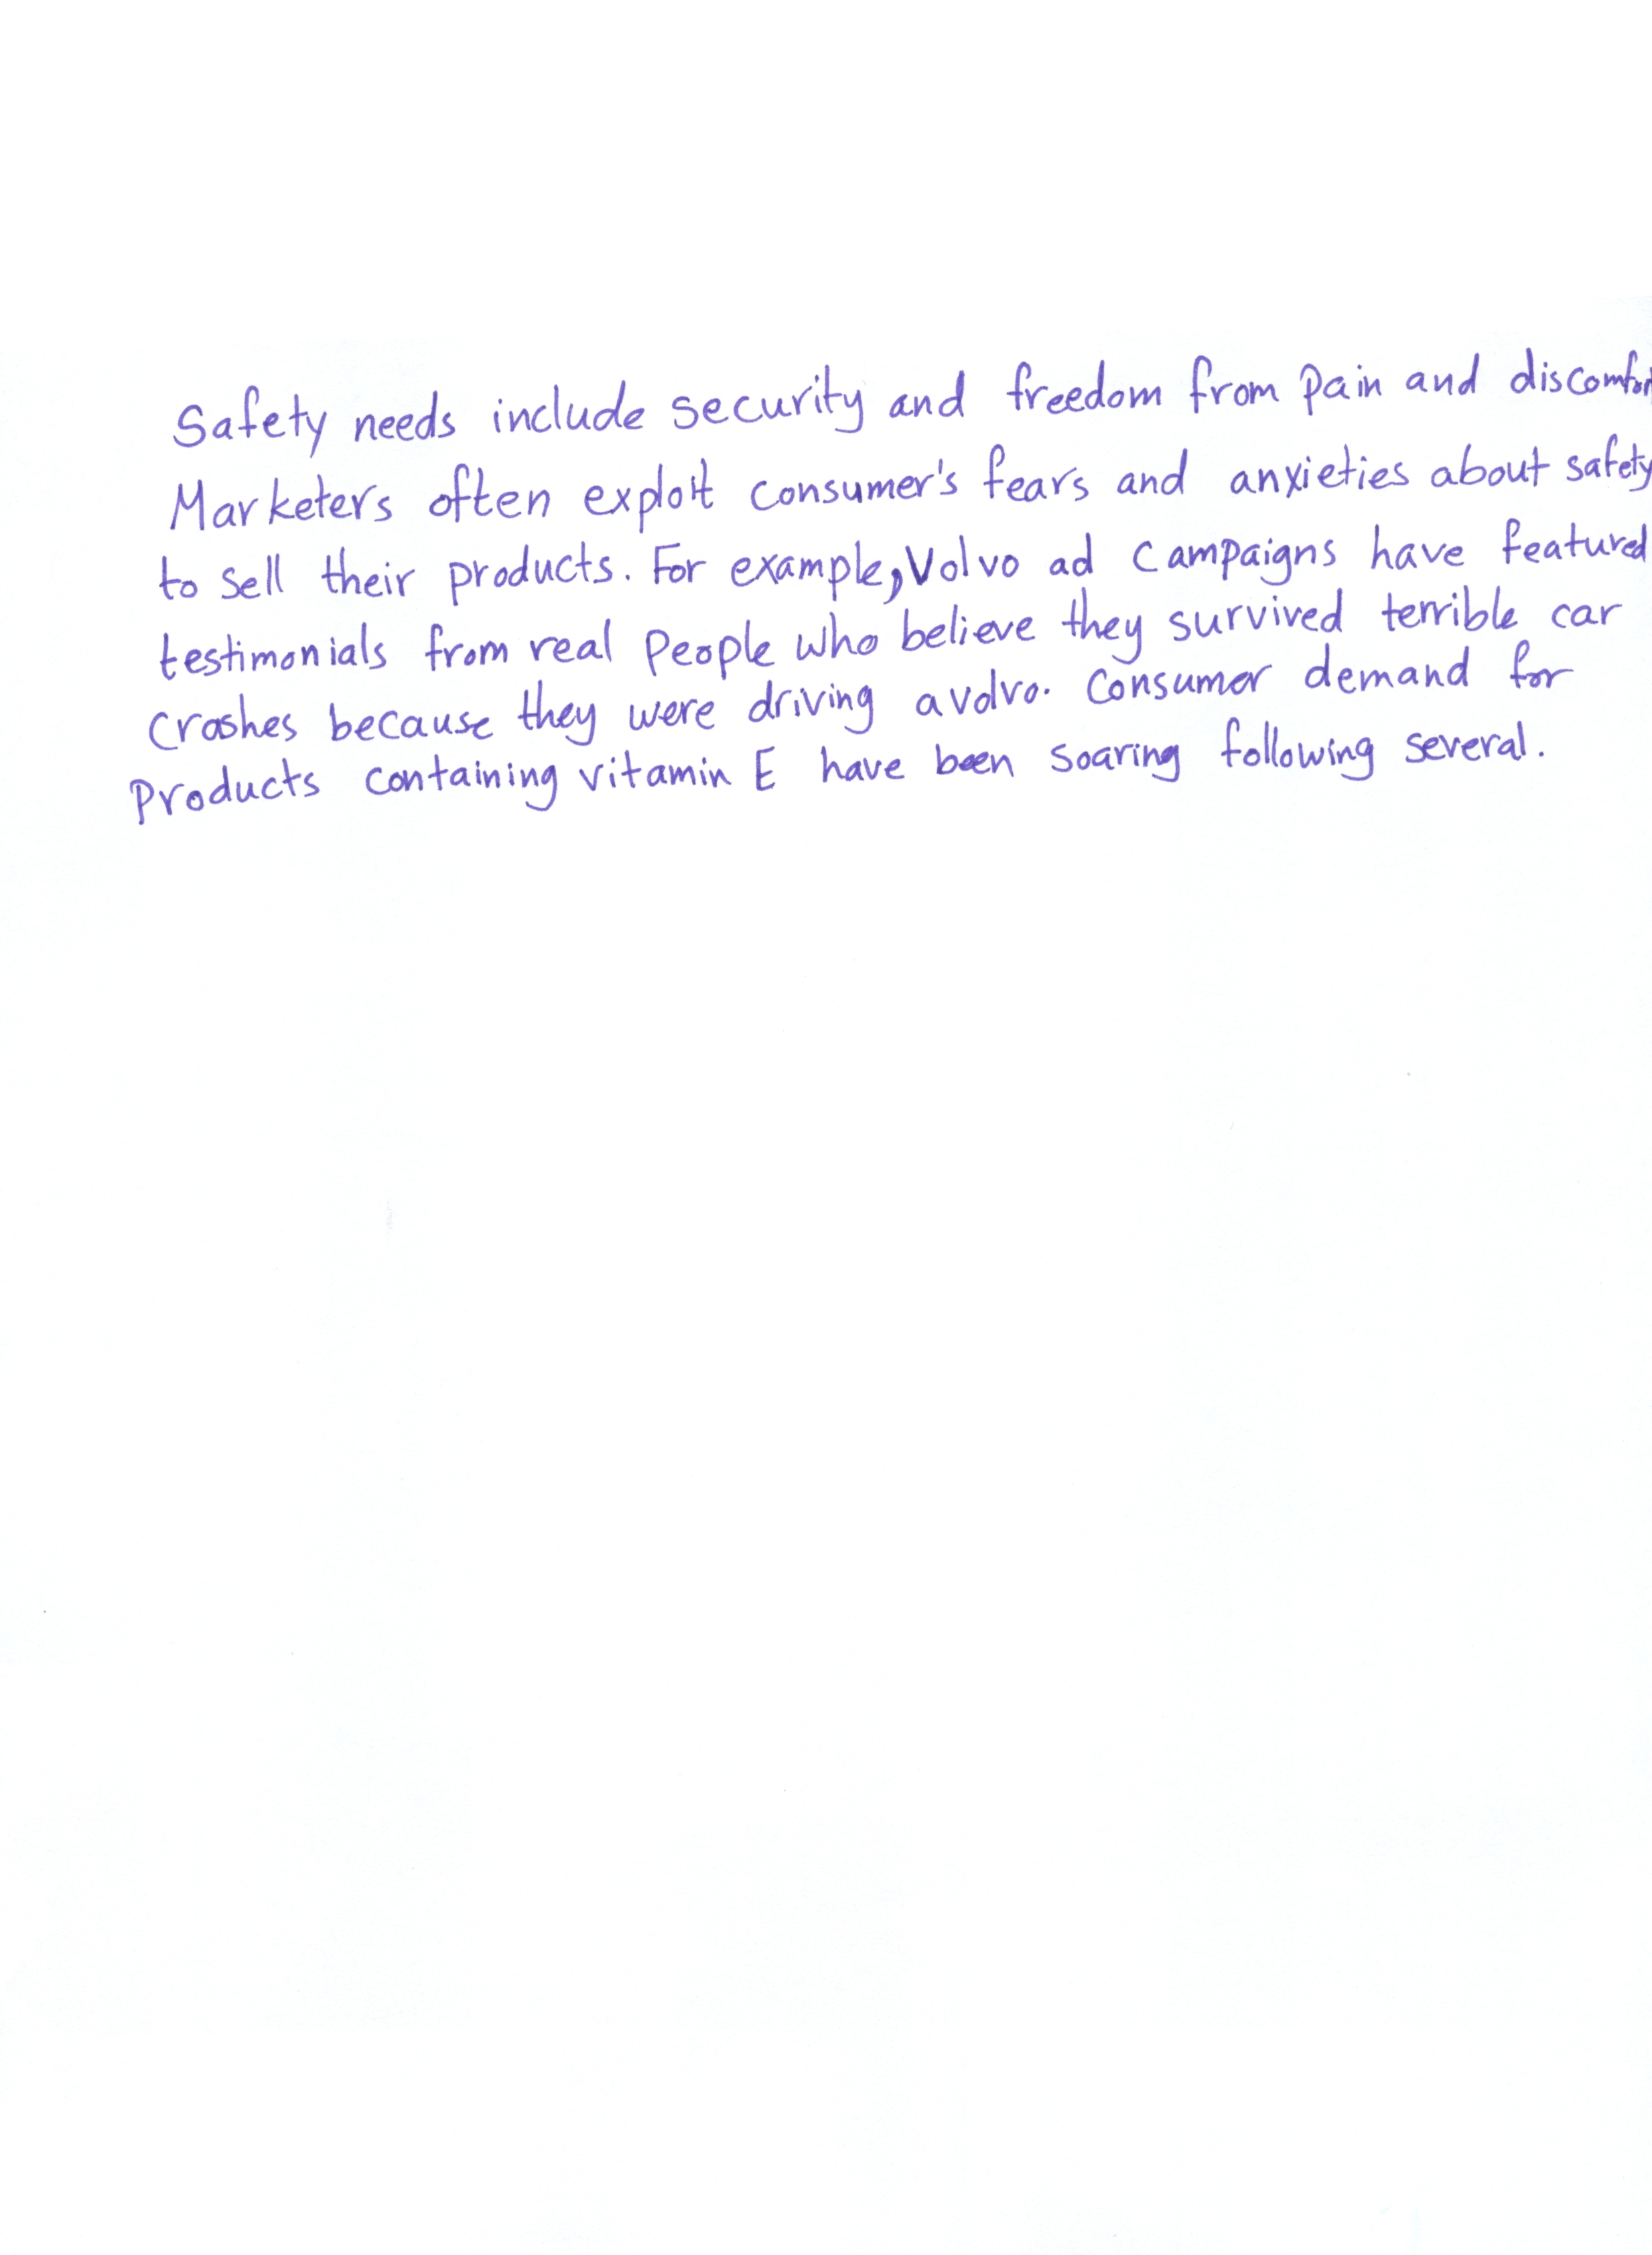 Safety needs include security and freedom from pain and discomfort
Marketers often exploit consumer's fears and anxieties about safety
to sell their products. For example, Volvo ad campaigns have featured
testimonials from real people who believe they survived terrible car
crashes because they were driving a volvo. Consumer demand for
products containing vitamin E have been soaring following several.